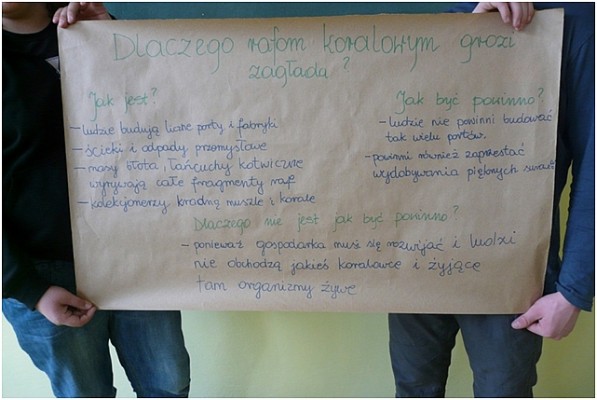 Dlaczego rafom koralowym grozi
zagłada?
Jak jest?
- ludzie budują liczne porty i fabryki
- ścieki i odpady przemysłowe
- masy błota, łańcuchy kotwiczne
wyrywają całe fragmenty raf
- kolekcjonerzy kradną muszle i korale
Jak być powinno?
- ludzie nie powinni budować
tak wielu portów.
- powinni również zaprzestać
wydobywania pięknych
Dlaczego nie jest jak być powinno?
- ponieważ gospodarka musi się rozwijać i ludzi
nie obchodzą jakieś koralowce i żyjące
tam organizmy żywe